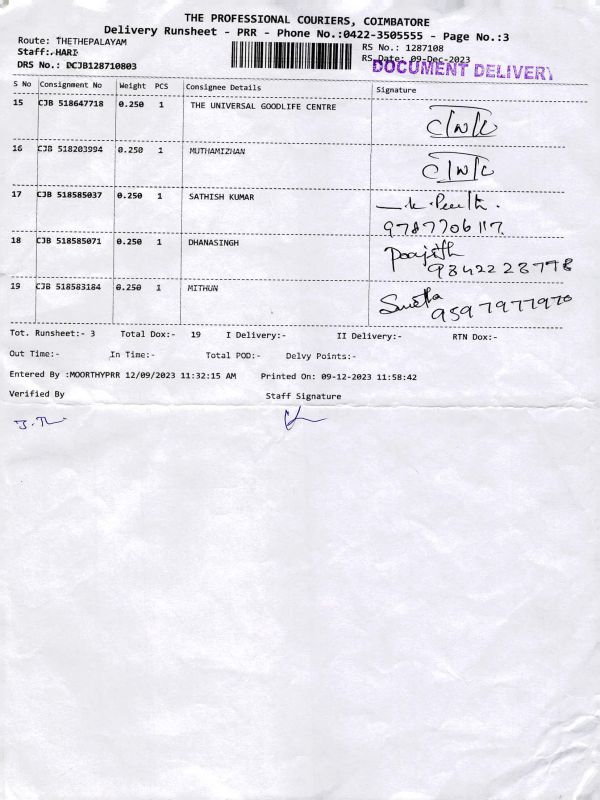 THE PROFESSIONAL COURIERS, COIMBATORE
Delivery Runsheet - PRR - Phone No.:0422-3505555 - Page No.:3
Route: THETHEPALAYAM
RS No.: 1287108
Staff: HARI
RS Date: 09-Dec-2023
DRS No.: DCJB128710803
DOCUMENT DELIVERY
S No Consignment No Weight PCS Consignee Details Signature
15 CJB 518647718 0.250 1 THE UNIVERSAL GOODLIFE CENTRE
16 CJB 518203994 0.250 1 MUTHAMIZHAN
17 CJB 518585037 0.250 1 SATHISH KUMAR
9787706117
18 CJB 518585071 0.250 1 DHANASINGH Poojith
9842223778
19 CJB 518583184 0.250 1 MITHUN
9597977970
Tot. Runsheet:- 3 Total Dox:- 19 I Delivery:- II Delivery:- RTN Dox:-
Out Time:- In Time:- Total POD:- Delvy Points:-
Entered By :MOORTHYPRR 12/09/2023 11:32:15 AM Printed On: 09-12-2023 11:58:42
Verified By Staff Signature